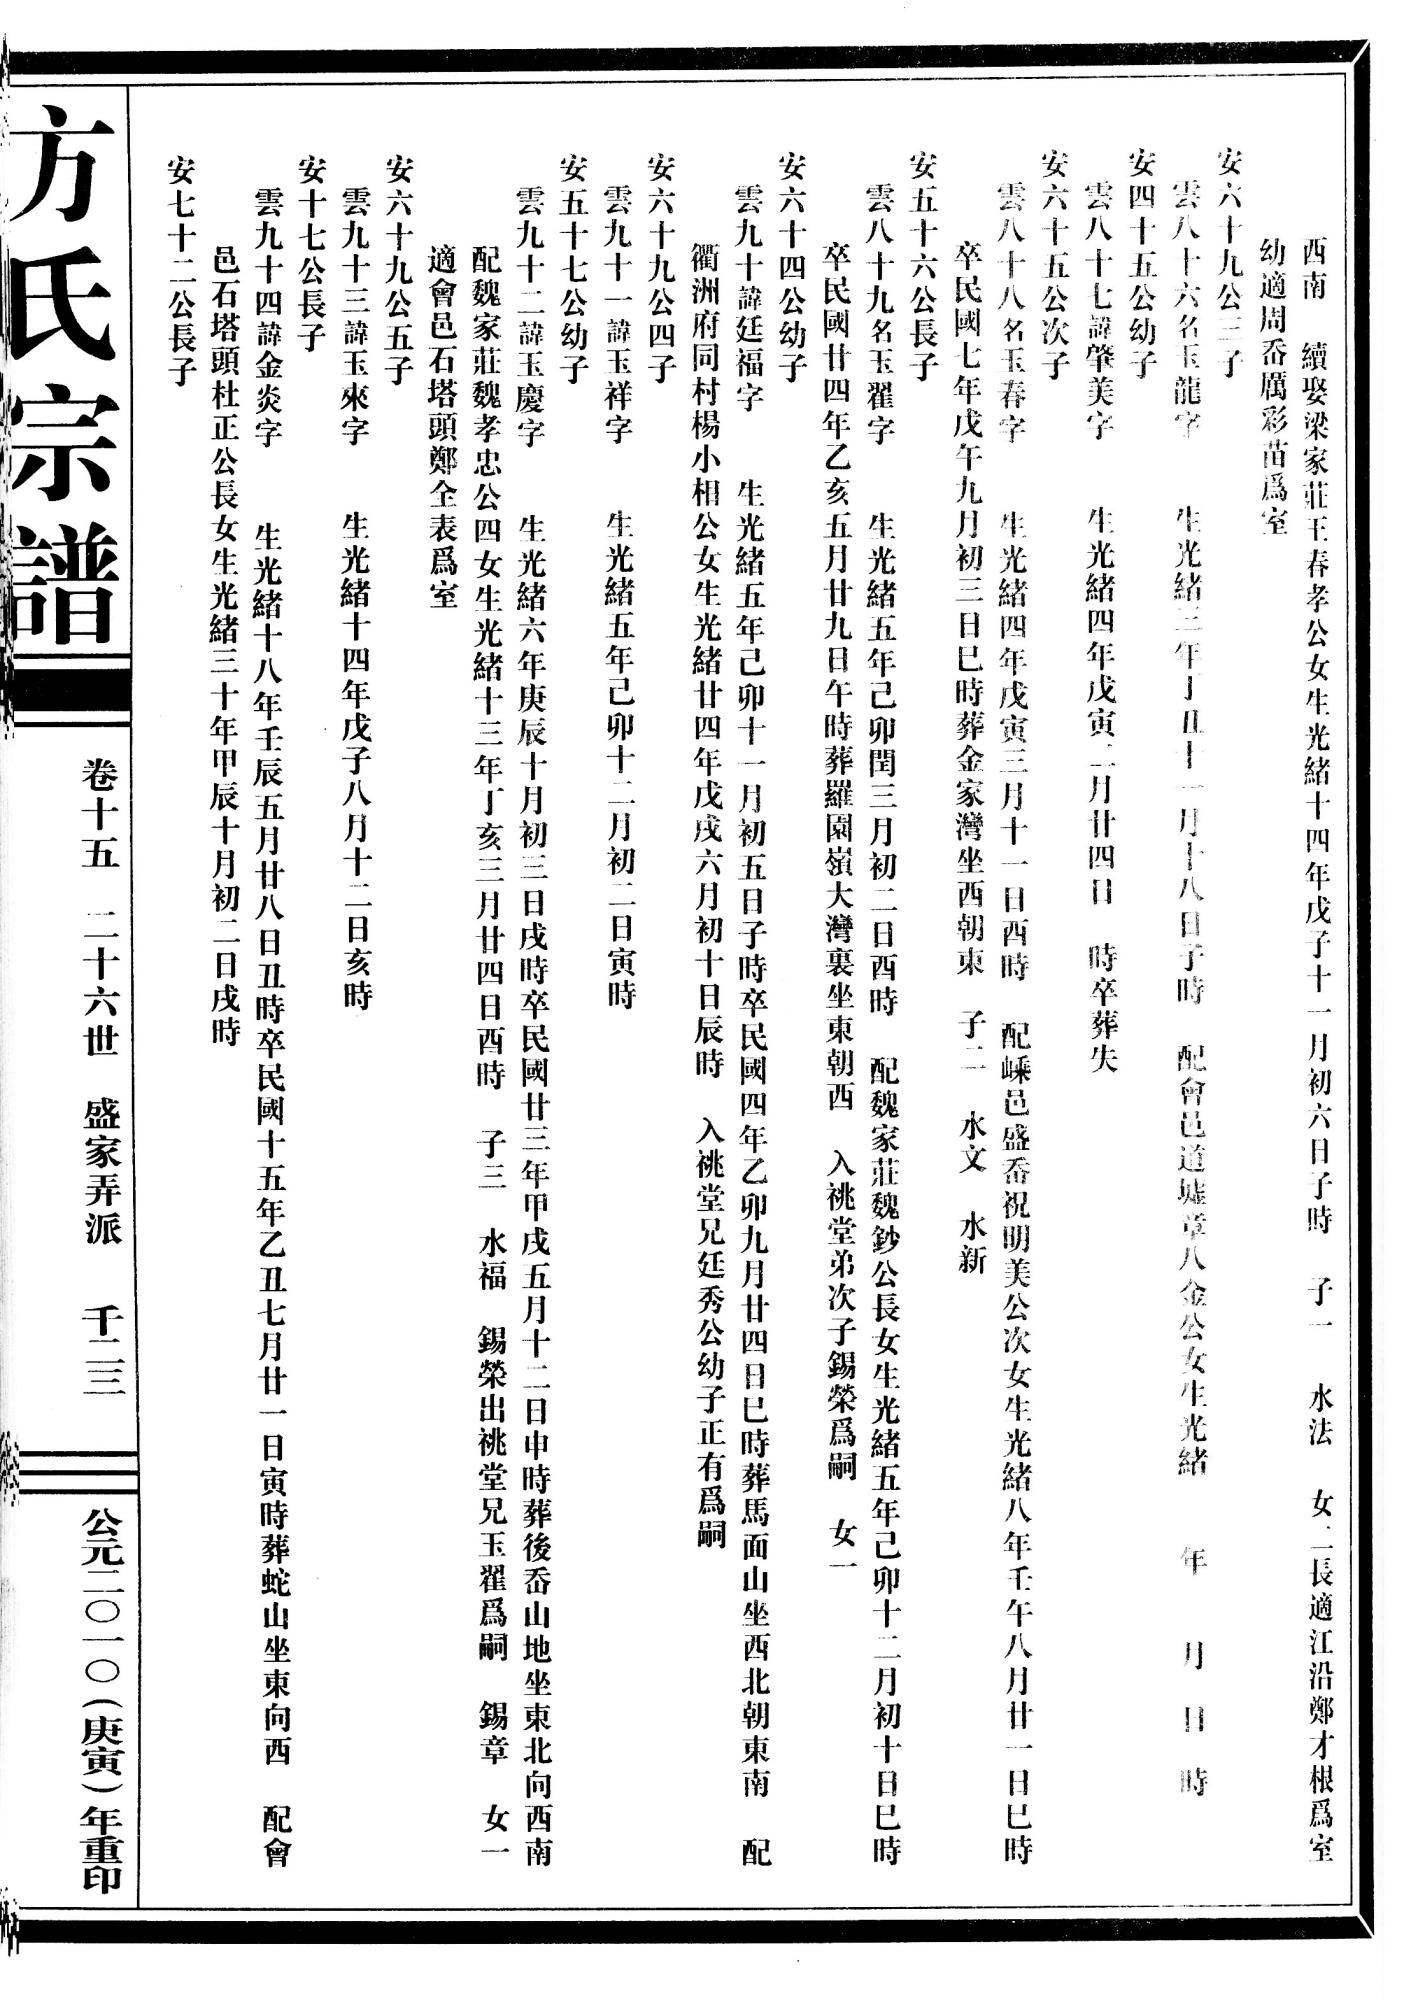 西南　續娶梁家莊王春孝公女生光緒十四年戊子十一月初六日子時　子一　水法　女二長適江沿鄭才根爲室
幼適周岙厲彩苗爲室
安六十九公三子
雲八十六名玉龍字　　生光緒三年丁丑十一月十八日子時　配會邑道墟章八金公女生光緒　年　月　日　時
安四十五公幼子
雲八十七諱肇美字　　生光緒四年戊寅二月廿四日　時卒葬失
安六十五公次子
雲八十八名玉春字　　生光緒四年戊寅三月十一日酉時　配嵊邑盛岙祝明美公次女生光緒八年壬午八月廿一日巳時
卒民國七年戊午九月初三日巳時葬金家灣坐西朝東　子二　水文　水新
安五十六公長子
雲八十九名玉翟字　　生光緒五年己卯閏三月初二日酉時　配魏家莊魏鈔公長女生光緒五年己卯十二月初十日巳時
卒民國廿四年乙亥五月廿九日午時葬羅園嶺大灣裏坐東朝西　入祧堂弟次子錫榮爲嗣　女一
安六十四公幼子
雲九十諱廷福字　　生光緒五年己卯十一月初五日子時卒民國四年乙卯九月廿四日巳時葬馬面山坐西北朝東南　配
衢洲府同村楊小相公女生光緒廿四年戊戌六月初十日辰時　入祧堂兄廷秀公幼子正有爲嗣
安六十九公四子
雲九十一諱玉祥字　　生光緒五年己卯十二月初二日寅時
安五十七公幼子
雲九十二諱玉慶字　　生光緒六年庚辰十月初三日戌時卒民國廿三年甲戌五月十二日申時葬後岙山地坐東北向西南
配魏家莊魏孝忠公四女生光緒十三年丁亥三月廿四日酉時　子三　水福　錫榮出祧堂兄玉翟爲嗣　錫章　女一
適會邑石塔頭鄭全表爲室
安六十九公五子
雲九十三諱玉來字　　生光緒十四年戊子八月十二日亥時
安十七公長子
雲九十四諱金炎字　　生光緒十八年壬辰五月廿八日丑時卒民國十五年乙丑七月廿一日寅時葬蛇山坐東向西　配會
邑石塔頭杜正公長女生光緒三十年甲辰十月初二日戌時
安七十二公長子
方氏宗譜　卷十五　二十六世　盛家弄派　千二三　公元二〇一〇（庚寅）年重印